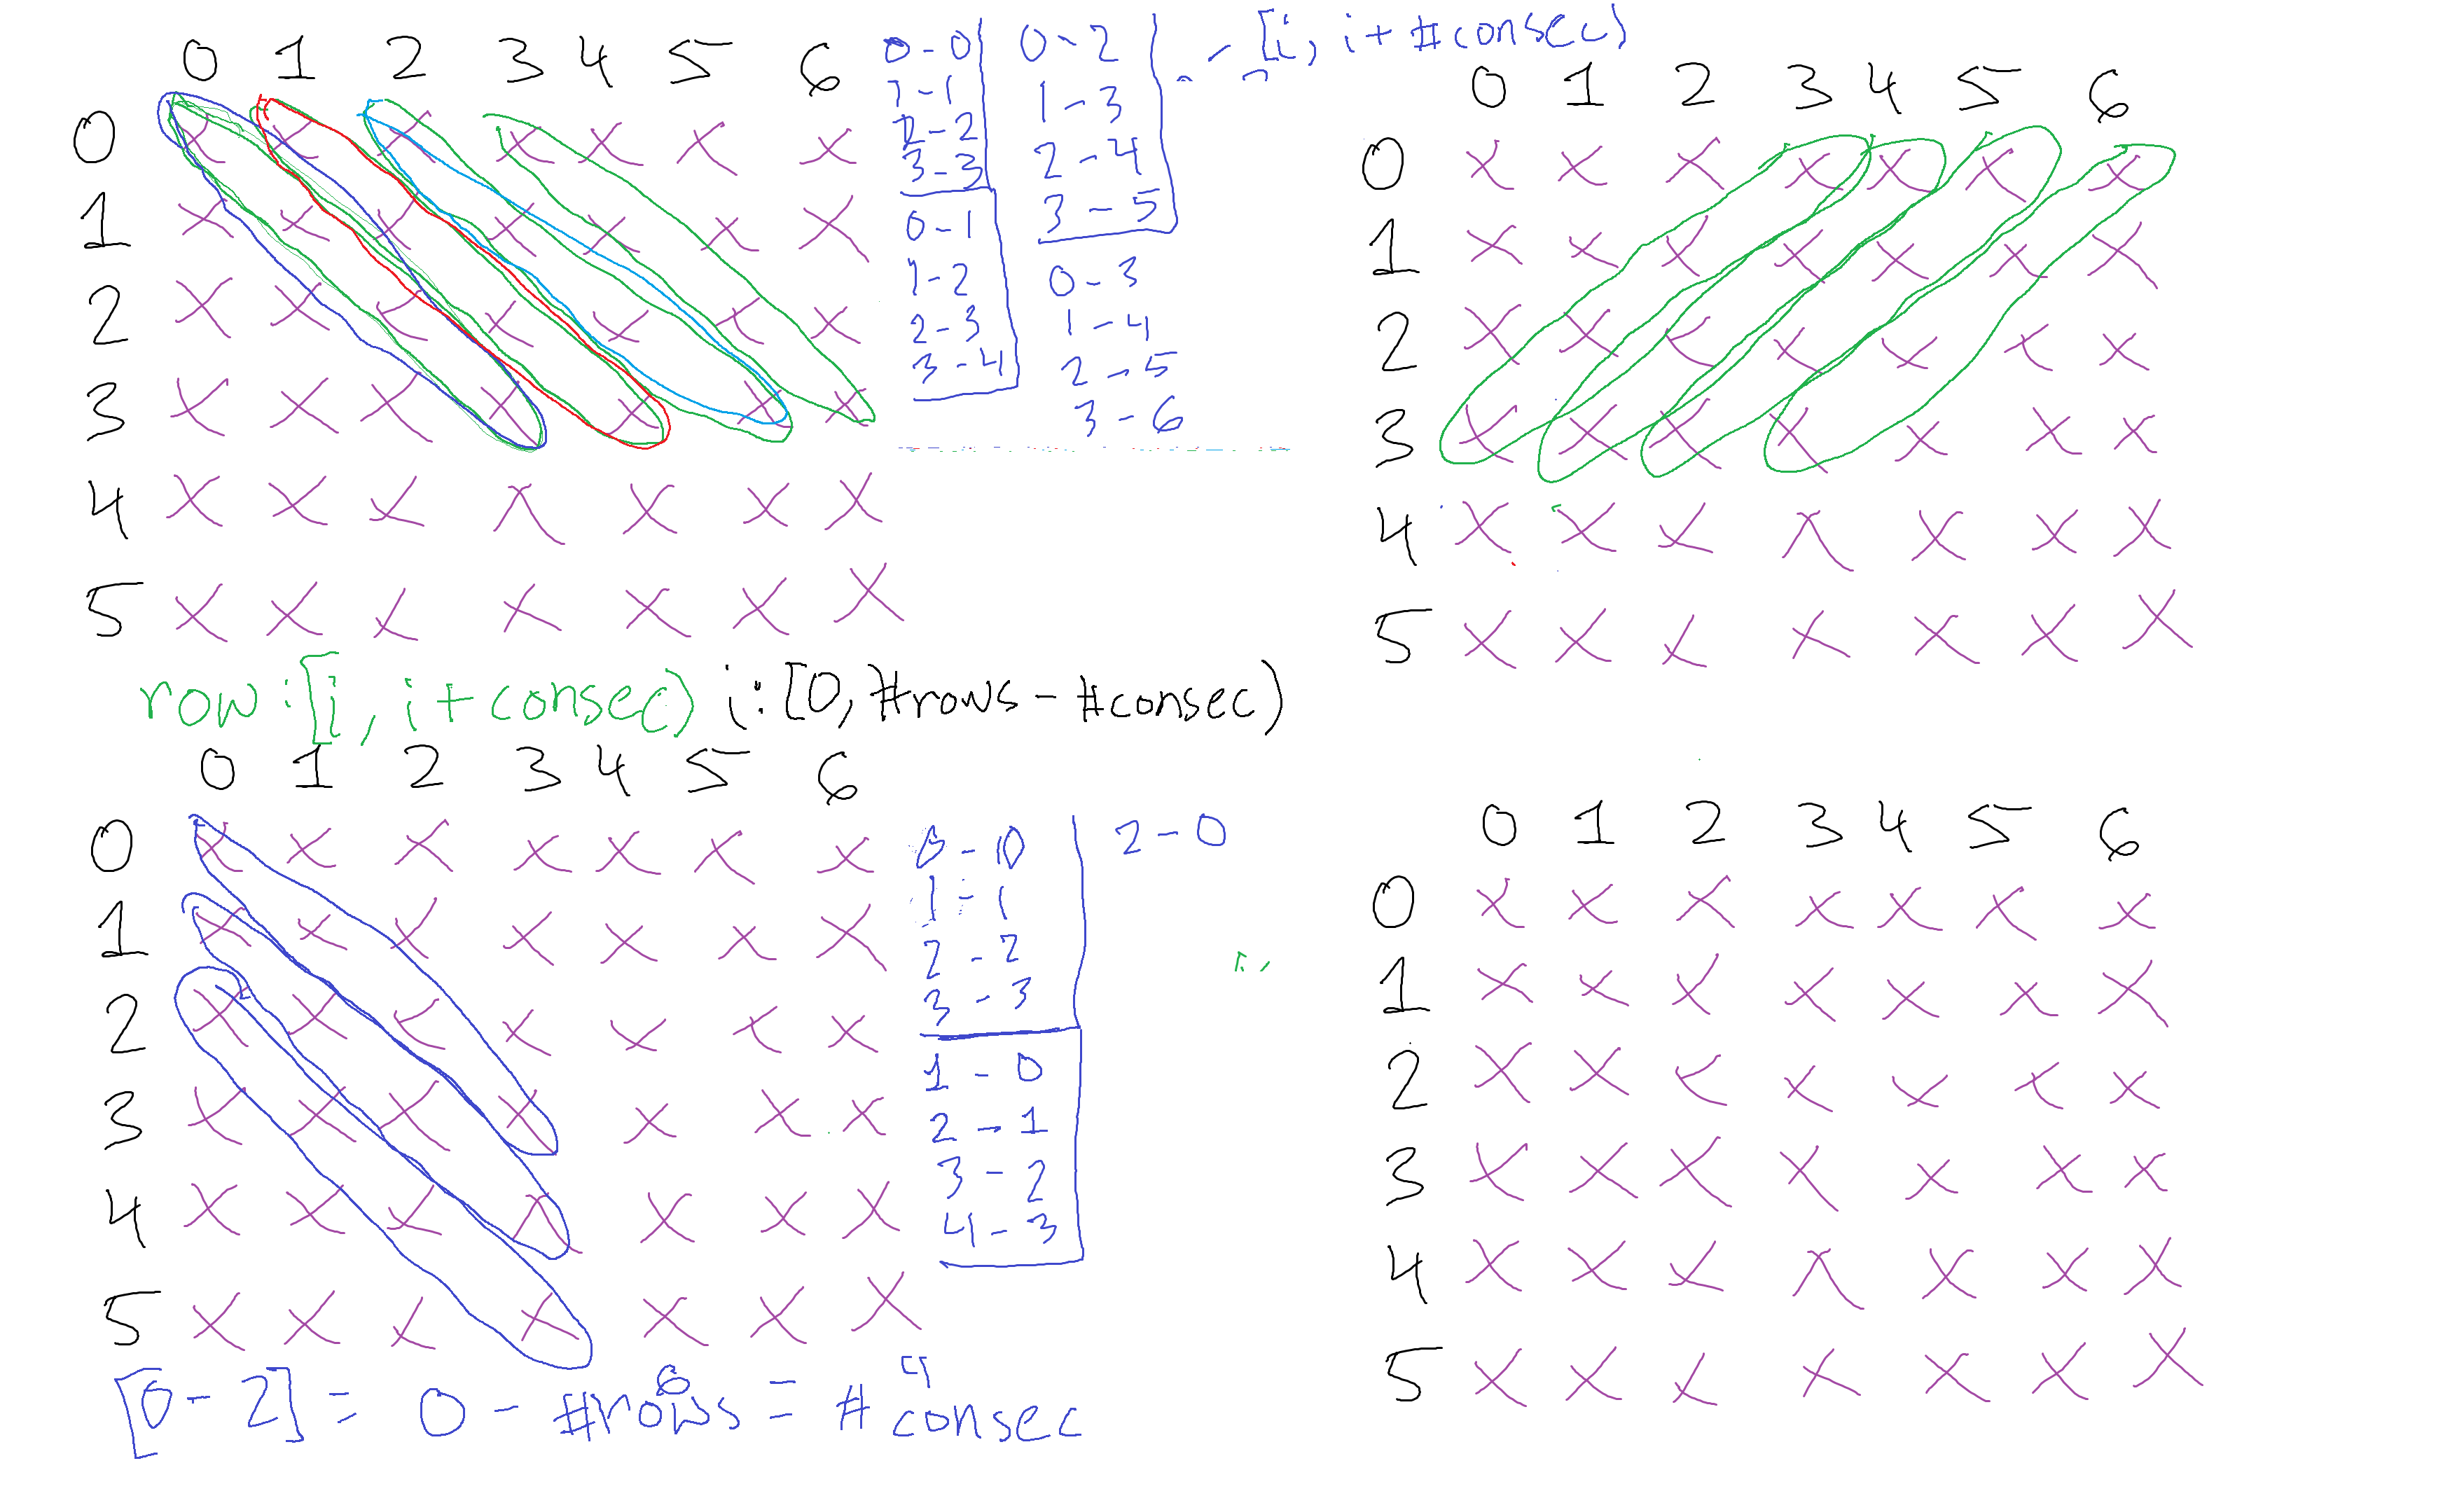 0 1 2 3 4 5 6
0 X X X X X X X
1 X X X X X X X
2 X X X X X X X
3 X X X X X X X
4 X X X X X X X
5 X X X X X X X
0-0
1-1
2-2
3-3
0-1
1-2
2-3
3-4
0-2
1-3
2-4
3-5
0-3
1-4
2-5
3-6
[i, i+ #consec)
0 1 2 3 4 5 6
0 X X X X X X X
1 X X X X X X X
2 X X X X X X X
3 X X X X X X X
4 X X X X X X X
5 X X X X X X X
row:[i, i+consec) i:[0, #rows-#consec)
0 1 2 3 4 5 6
0 X X X X X X X
1 X X X X X X X
2 X X X X X X X
3 X X X X X X X
4 X X X X X X X
5 X X X X X X X
0-0
1-1
2-2
3-3
1-0
2-1
3-2
4-3
2-0
0 1 2 3 4 5 6
0 X X X X X X X
1 X X X X X X X
2 X X X X X X X
3 X X X X X X X
4 X X X X X X X
5 X X X X X X X
6 4
[0-2] = 0 - #rows = #consec